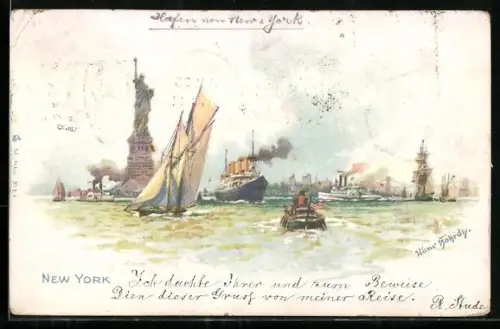 Hafen von New-York.
Hans Bohrdt.
NEW YORK
Ich dachte Ihrer und zum Beweise
Dien dieser Gruß von meiner Reise.
R. Stude